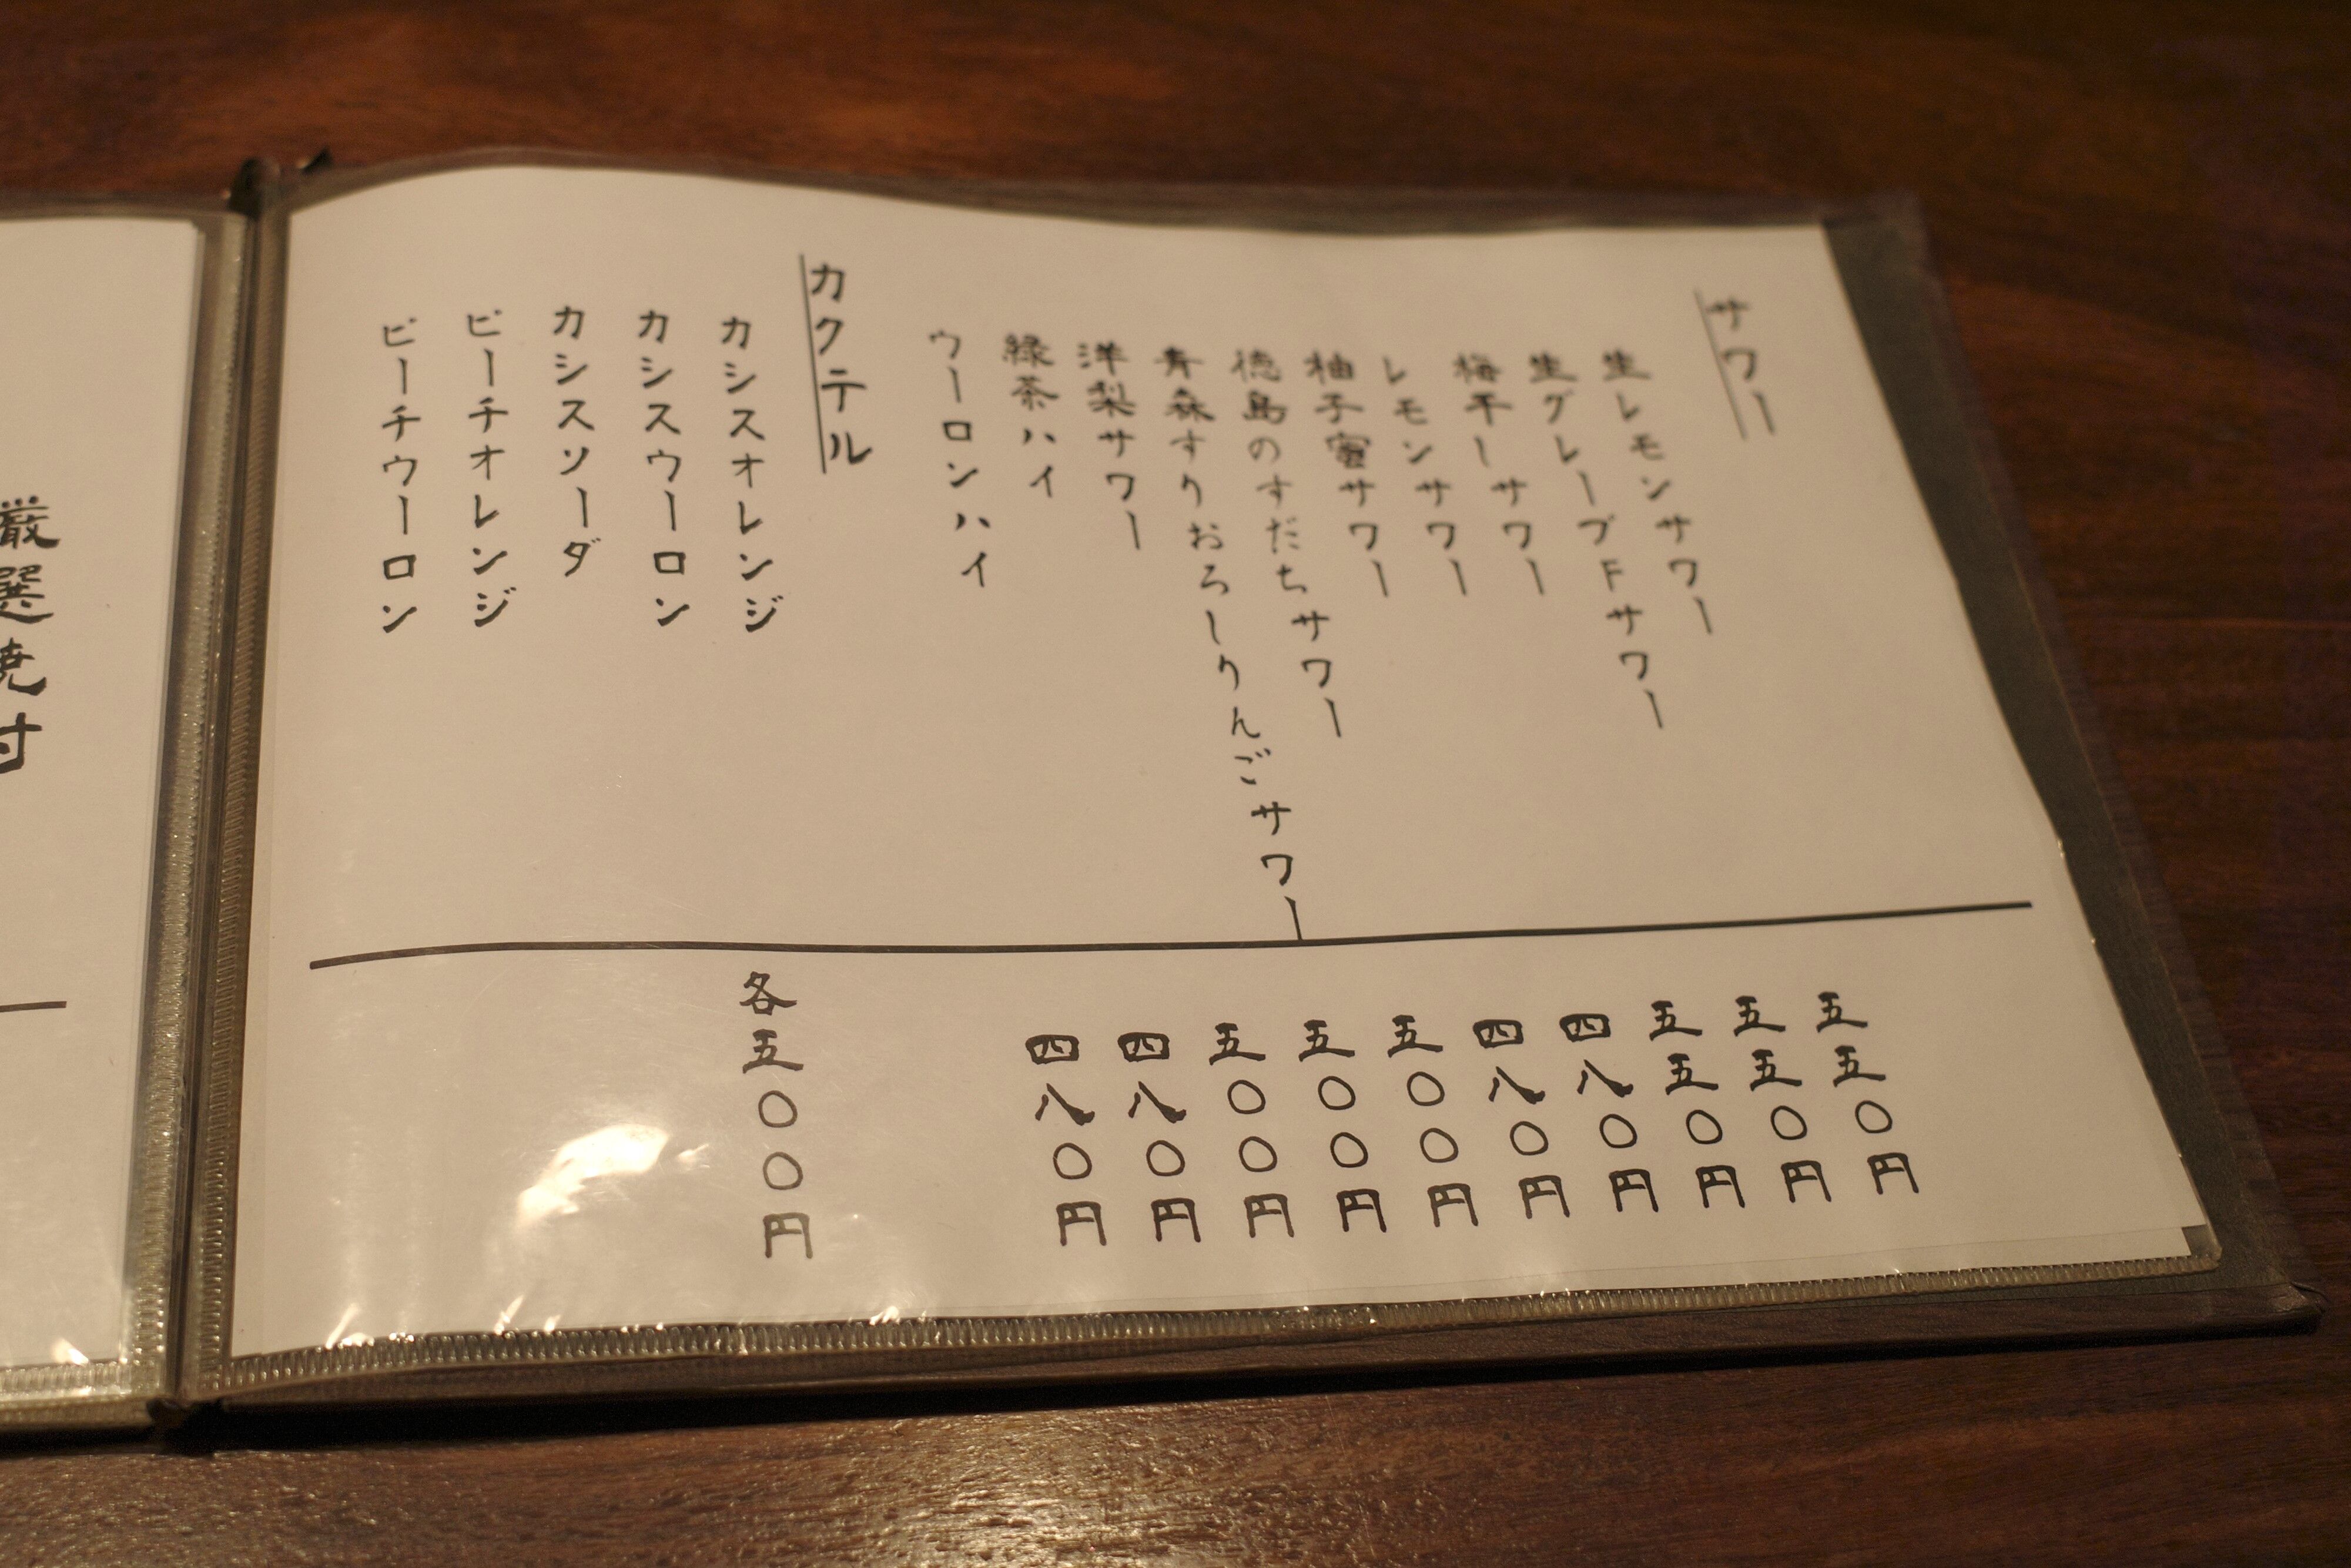 サワー
生レモンサワー
生グレープFサワー
梅干ーサワー
レモンサワー
柚子蜜サワー
徳島のすだちサワー
青森すりおろーりんごサワー
洋梨サワー
緑茶ハイ
ウーロンハイ
五五〇円
五五〇円
五五〇円
四八〇円
四八〇円
五〇〇円
五〇〇円
五〇〇円
四八〇円
四八〇円
カクテル
カシスオレンジ
カシスウーロン
カシスソーダ
ピーチオレンジ
ピーチウーロン
各五〇〇円
厳選焼寸